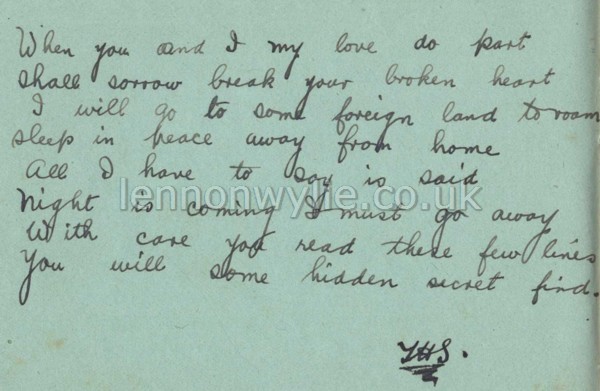 When you and I my love do part
shall sorrow break your broken heart
I will go to some foreign land to roam
sleep in peace away from home
All I have to say is said
lennonwylie.co.uk
Night is coming I must go away
With care you read these few lines
You will some hidden secret find.
THS.